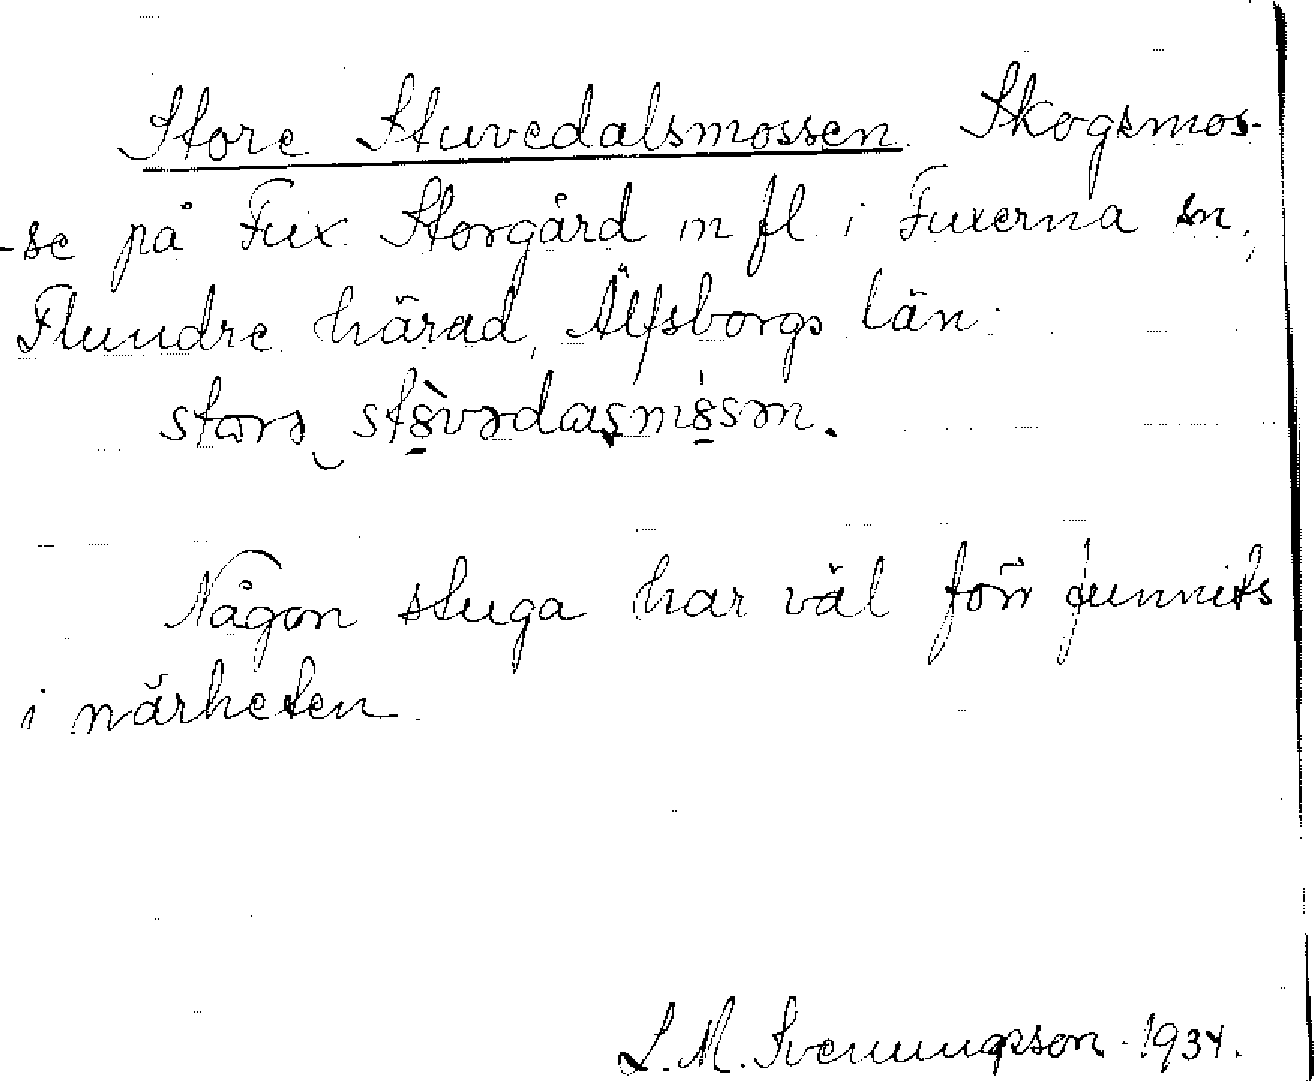 Store Stuvedalsmossen Skogsmos-
-se på Fux Storgård m fl i Fuxerna sn,
Flundre härad, Älfsborgs län.
Någon stuga har väl förr funnits
i närheten
S. M. Svenungsson 1934.